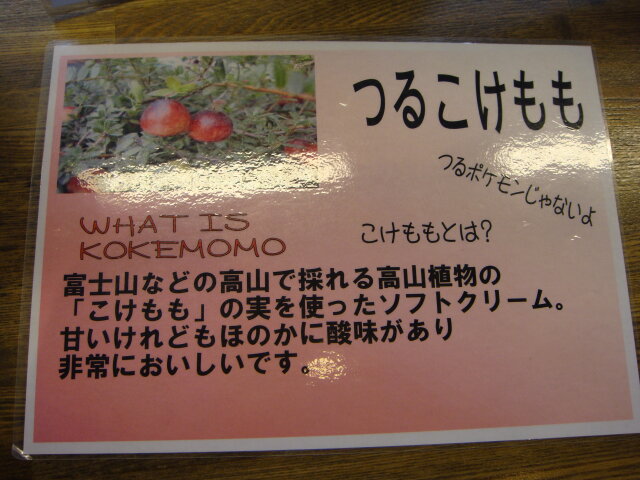 つるこけもも
つるポケモンじゃないよ
WHAT IS
KOKEMOMO
こけももとは?
富士山などの高山で採れる高山植物の
「こけもも」の実を使ったソフトクリーム。
甘いけれどもほのかに酸味があり
非常においしいです。